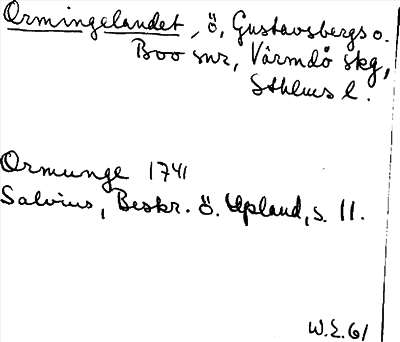 Ormingelandet, ö, Gustavsbergs o.
Boo snr, Värmdö skg,
Sthlms l.
Ormunge 1741
Salvius, Beskr. ö. Upland, s. 11.
W.E. 61